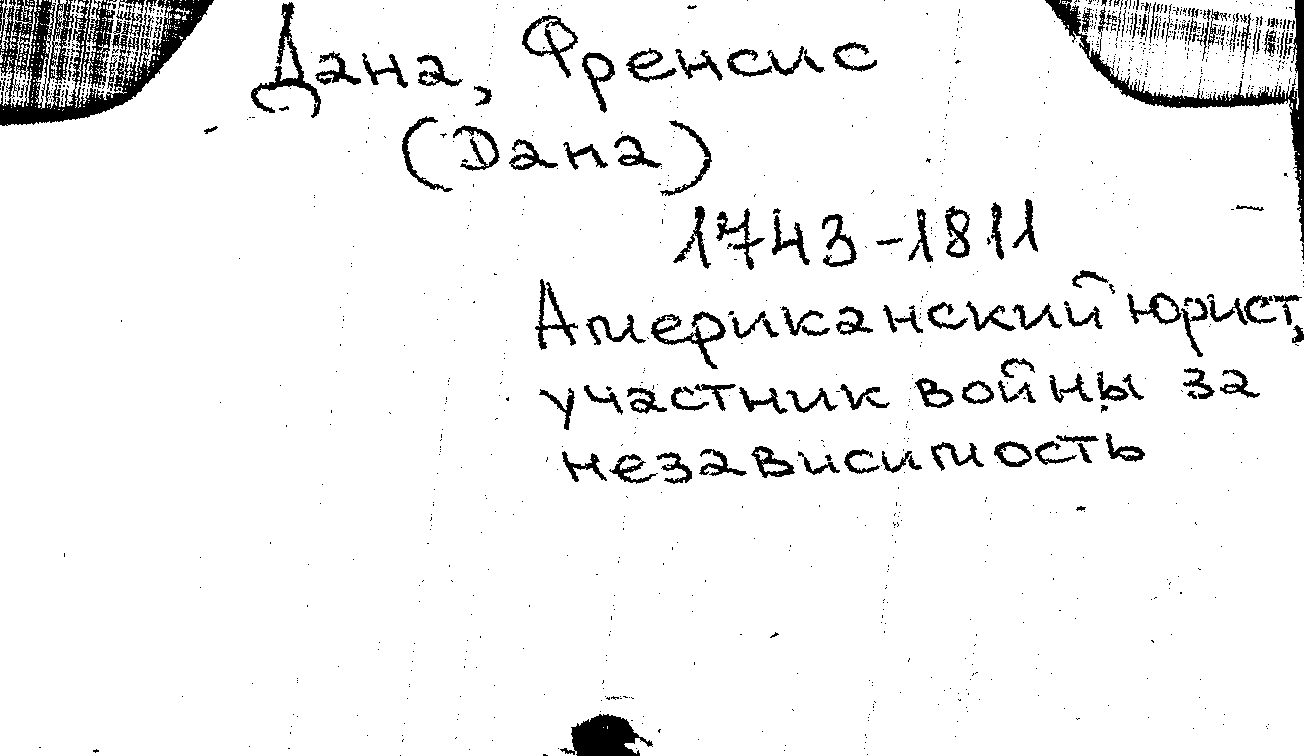 Дана, Френсис
(Dана)
1743-1811
Американский юрист,
участник войны за
независимость